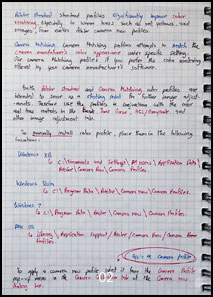 Adobe Standard Standard profiles significantly improve color
rendering, especially in human tones, such as and
images, than earlier Adobe camera raw profiles.
Camera Matching Camera Matching profiles attempts to match
the camera manufacturer's color appearance under specific settings.
Use Camera Matching profiles if you prefer the color rendering
offered by your camera manufacturer's software.
Both Adobe Standard and Camera Matching color profiles are
intended to serve as a starting point for further image adjust-
ments. Therefore use the profiles in conjunction with the color
and tone controls in the Basic, Tone Curve, HSL / Grayscale, and
other image adjustment tabs.
To manually install color profile, place them in the following
locations:
Windows XP
C:\Documents and Settings\All Users\Application Data\
Adobe\Camera Raw\Camera Profiles.
Windows Vista
C:\Program Data\Adobe\Camera Raw\Camera Profiles.
Windows 7
C:\Program Data\Adobe\Camera Raw\Camera Profiles.
Mac OS
Library\Application Support\Adobe\Camera Raw\Camera
Profiles
Apply a camera profile
To apply a camera profile select it from the Camera Profile
pop-up menu in the Camera tab of the Camera Raw
dialog box.
02